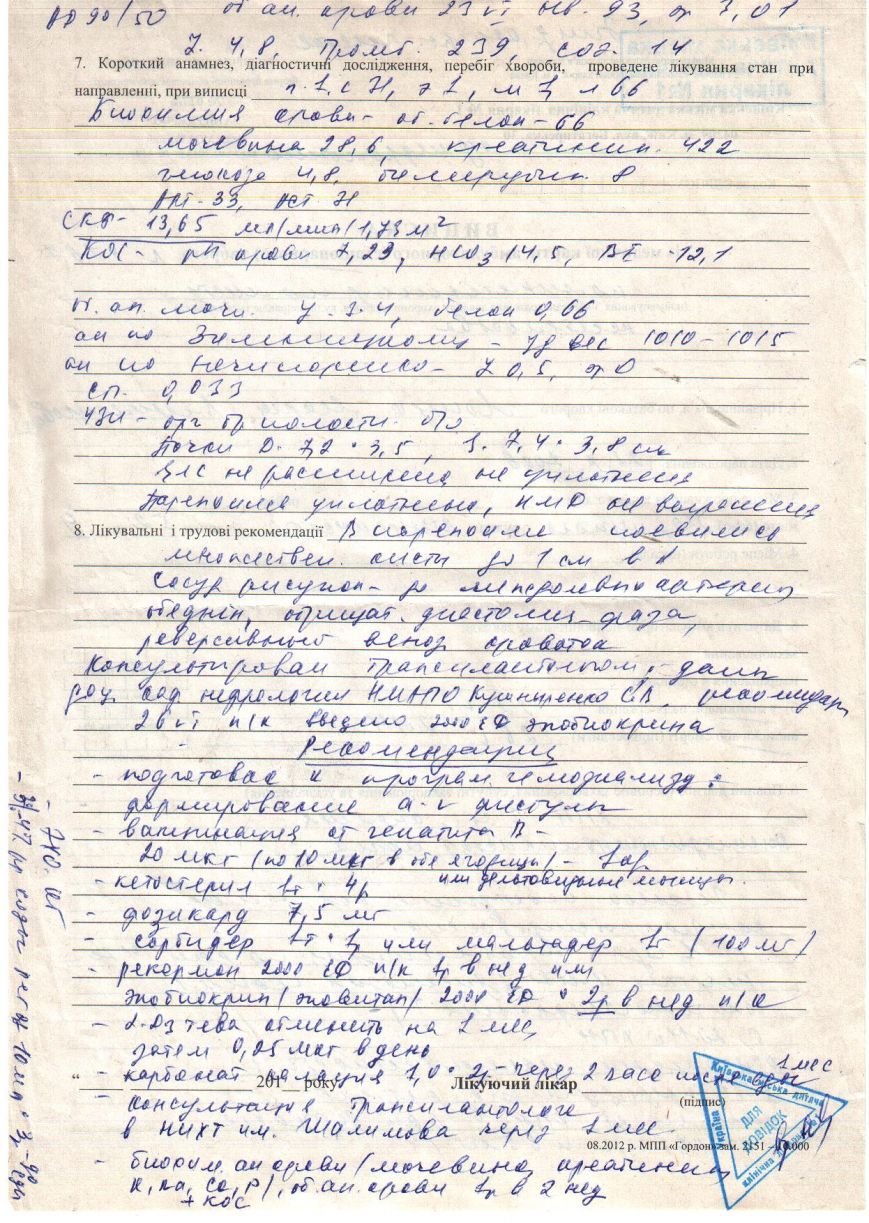 АД 90/50 об ан. крови 23 VI Нв. 93, эр 3,01
L. 4,8, Тромб. 239, соэ. 14
7. Короткий анамнез, діагностичні дослідження, перебіг хвороби, проведене лікування стан при
направленні, при виписці п. 1, с э 1, м л 66
Биохимия крови - об. белок - 66
мочевина 28,6, креатинин. 422
глюкоза 4,8, билирубин. 8
СКФ - 13,65 мл/мин/1,73м²
КОС - рН крови 7,29, НСО3 14,5, ВЕ -12,1
об. ан. мочи. 3-4, белок 0,66
ан по Зимницкому - уд вес 1010 - 1015
ан по Нечипоренко - L 0,5, эр 0
сп. 0,033
УЗИ - орг бр. полости. б/о
Почки D. 7,2 * 3,5, S. 7,4 * 3,8 см
ЧЛС не расширена не уплотнена
Паренхима уплотнена, КМД не выражена
8. Лікувальні і трудові рекомендації В паренхиме появились
множествен. кисты до 1 см в
Сосуд рисунок - до артерий
обеднён, отрицат. диастолич. фаза,
реверсивный веноз кровоток
Консультирован трансплантологом; даны
доц. каф нефрологии НМАПО Кушниренко С.В. рекомендац
26 VI п/к введено 2000 ЕД эпобиокрина
Рекомендации
- подготовка к програм гемодиализу:
формирование а-v фистулы
- вакцинация от гепатита В -
20 мкг (по 10 мкг в обе ягодицы) -
или дельтовидные мышцы.
- кетостерил 1т * 4р
- фозикард 7,5 мг
- сорбифер 1т * 1р или мальтофер 1т (100 мг)
- рекормон 2000 ЕД п/к 1р в нед или
эпобиокрин (эповитан) 2000 ЕД * 2р в нед п/к
- L-D3 тева отменить на 1 мес,
затем 0,25 мкг в день
- карбонат кальция 1,0 * 2р - через 2 часа после еды 1 мес
“ 201 року Лікуючий лікар
(підпис)
- консультация трансплантолога
в НИХТ им. Шалимова через 1 мес.
08.2012 р. МПП «Гордон» зам. 2151 – 10.000
- биохим. ан крови (мочевина, креатинин
К, Na, Ca, P), об. ан. крови 1р в 2 нед
+ КОС
Київська дитяча
клінічна
Україна
ДЛЯ
ДОВІДОК